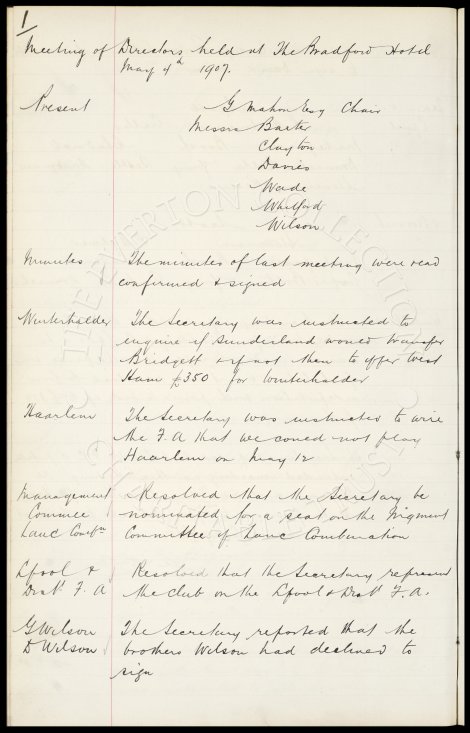 1
Meeting of Directors held at The Bradford Hotel
May 4th 1907.
Present G Mahon Esq Chair
Messrs Baxter
Clayton
Davies
Wade
Whitford
Wilson
Minutes The minutes of last meeting were read
confirmed & signed
Winterhalder The Secretary was instructed to
enquire if Sunderland would transfer
Bridgett & if not then to offer West
Ham £350 for Winterhalder
Haarlem The Secretary was instructed to wire
the F.A that we could not play
Haarlem on May 12
Management Resolved that the Secretary be
Commee nominated for a seat on the Mgment
Lanc Combn Committee of Lanc Combination
Lpool & Resolved that the Secretary represent
Dist F.A the club on the Lpool & Dist F.A.
G Wilson The Secretary reported that the
D Wilson brothers Wilson had declined to
sign
THE EVERTON COLLECTION